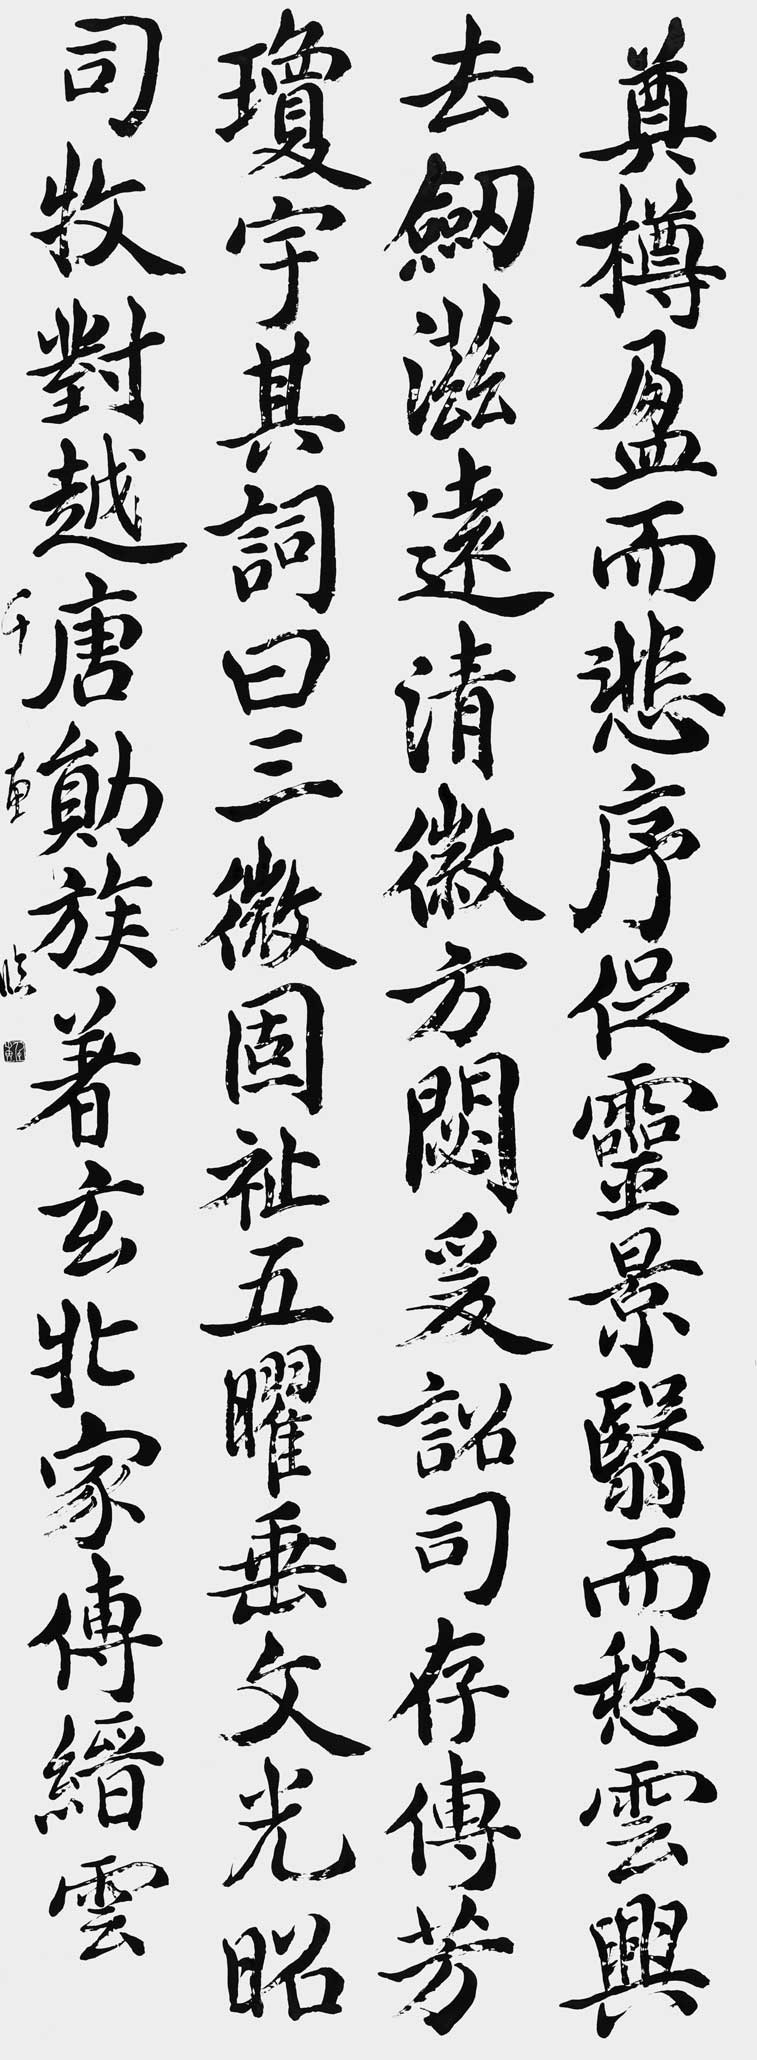 奠樽盈而悲序促靈景翳而愁雲興
去劒滋遠清徽方閟爰詔司存傳芳
瓊字其詞曰三微固祉五曜垂文光昭
司牧對越唐勛族著玄北家傳縉雲